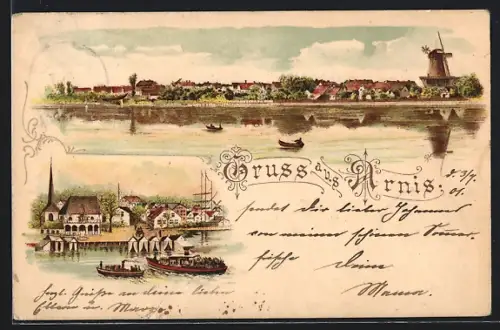 Gruss aus Arnis.
d. 3/7. 01.
sendet Dir lieber Johannes
von meiner schönen Sommer-
frische Deine
Mama.
Herzl. Grüße an deine lieben
Eltern u.